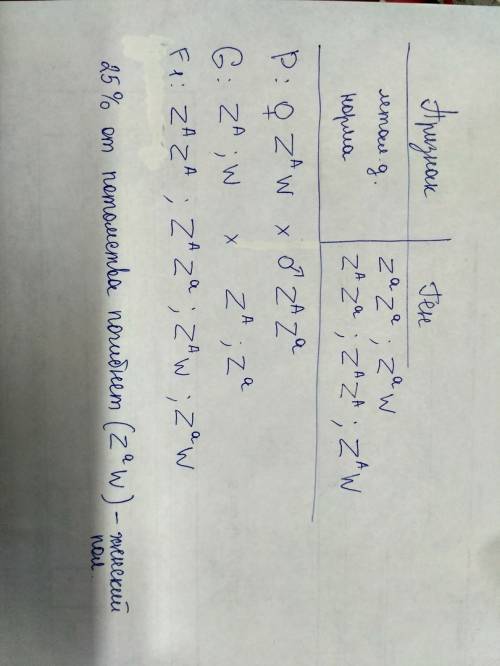 Признак Ген
летал.д. ZᵃZᵃ ; ZᵃW
норма ZᴬZᵃ ; ZᴬZᴬ ; ZᴬW
P: ♀ ZᴬW x ♂ ZᴬZᵃ
G: Zᴬ ; W x Zᴬ ; Zᵃ
F1: ZᴬZᴬ ; ZᴬZᵃ ; ZᴬW ; ZᵃW
25% от потомства погибнет (ZᵃW) – женский
пол.